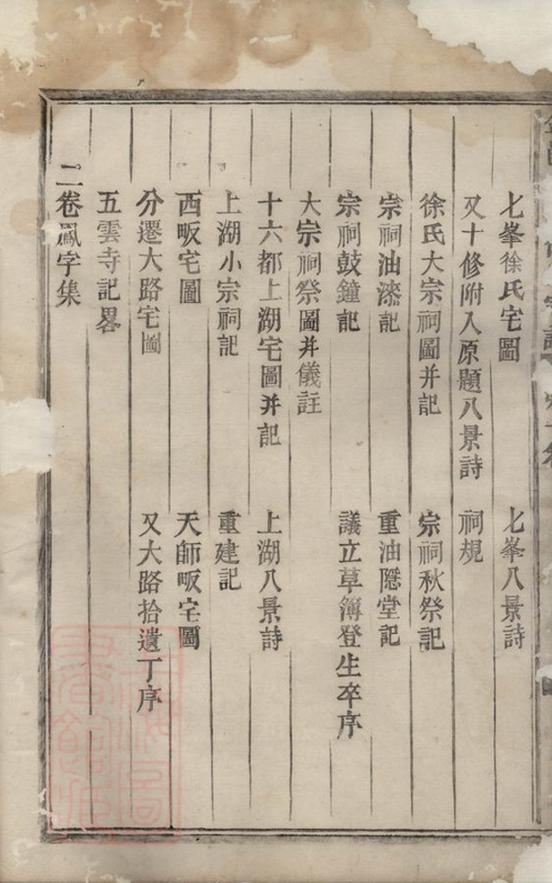 七峯徐氏宅圖　七峯八景詩
又十修附入原題八景詩　祠規
徐氏大宗祠圖并記　宗祠秋祭記
宗祠油漆記　重油隱堂記
宗祠鼓鐘記　議立草簿登生卒序
大宗祠祭圖并儀註
十六都上湖宅圖并記　上湖八景詩
上湖小宗祠記　重建記
西畈宅圖　天師畈宅圖
分遷大路宅圖　又大路拾遺丁序
五雲寺記畧
二卷鳳字集